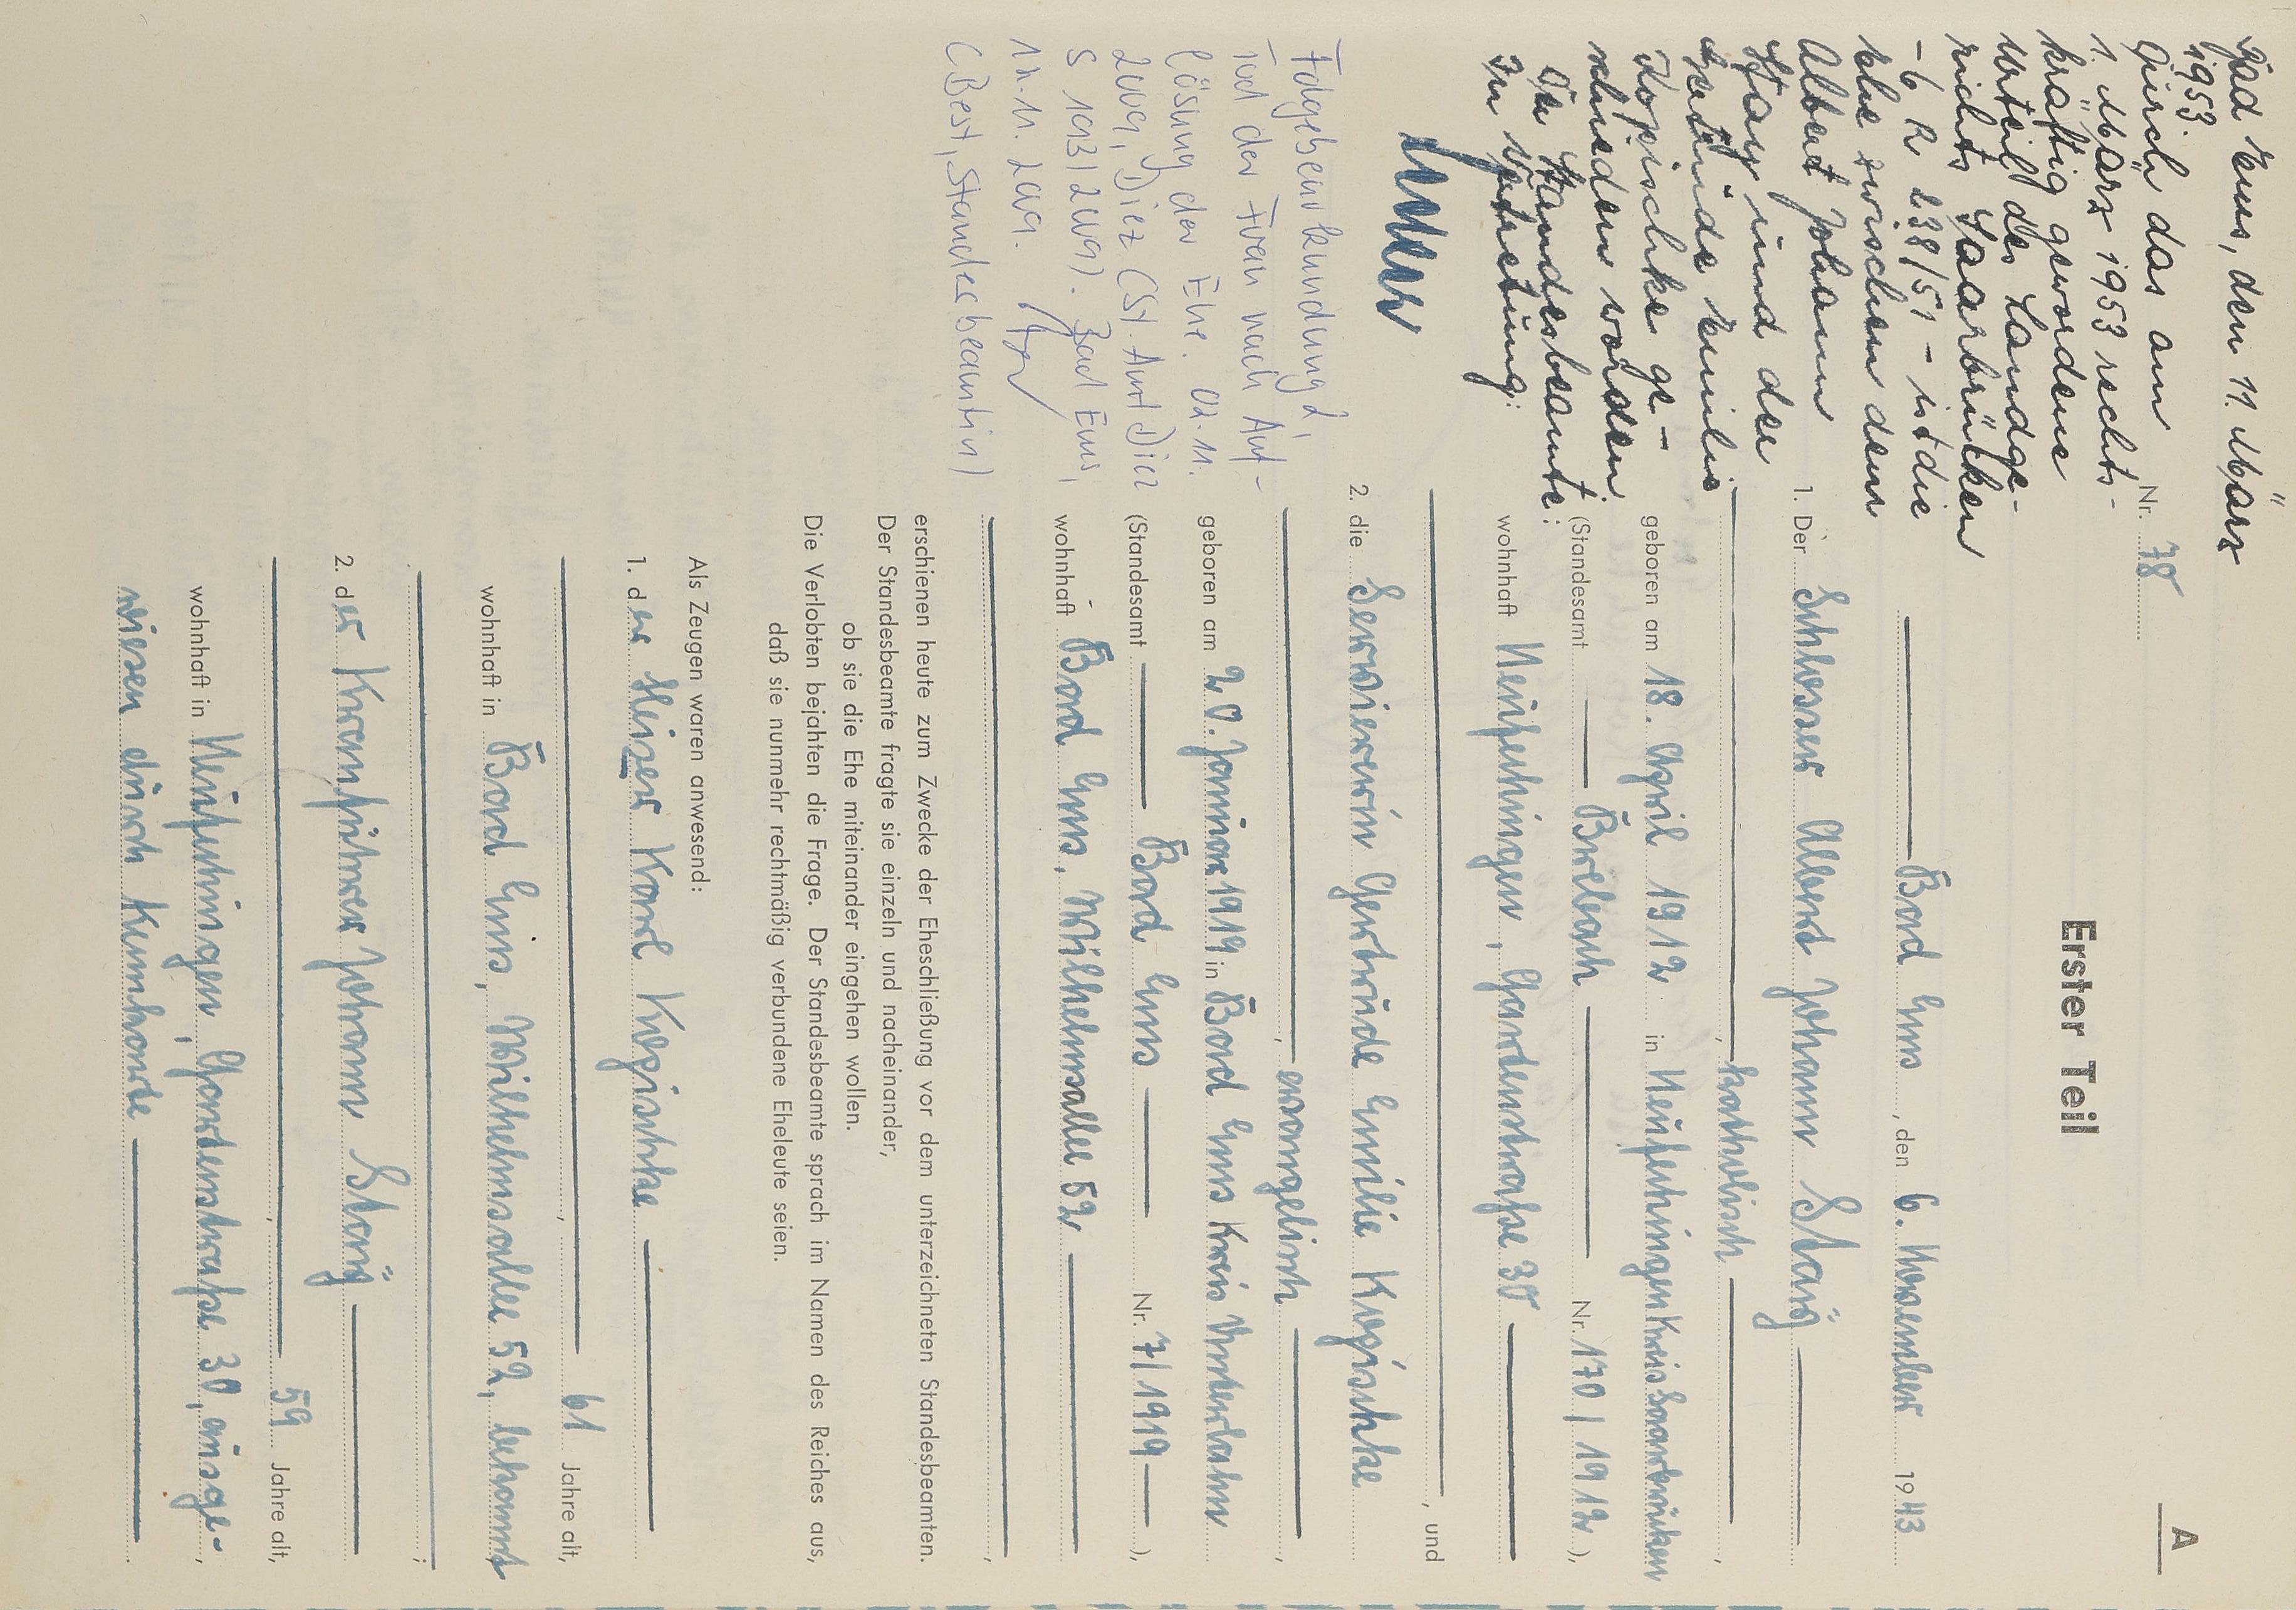 A
Erster Teil
Nr. 78
Bad Ems, den 6. November 1943
1. Der Schlosser Albert Johann Staÿ
, katholisch ,
geboren am 18. April 1912 in Neufechingen Kreis Saarbrücken
(Standesamt Brebach Nr. 170/1912 ),
wohnhaft Neufechingen, Gartenstraße 30
, und
2. die Serviererin Gertrude Emilie Kopischke
, evangelisch ,
geboren am 20. Januar 1919 in Bad Ems Kreis Unterlahn
(Standesamt Bad Ems Nr. 7/1919 ),
wohnhaft Bad Ems, Wilhelmsallee 52
,
erschienen heute zum Zwecke der Eheschließung vor dem unterzeichneten Standesbeamten.
Der Standesbeamte fragte sie einzeln und nacheinander,
ob sie die Ehe miteinander eingehen wollen.
Die Verlobten bejahten die Frage. Der Standesbeamte sprach im Namen des Reiches aus,
daß sie nunmehr rechtmäßig verbundene Eheleute seien.
Als Zeugen waren anwesend:
1. der Heizer Karl Kopischke
, 61 Jahre alt,
wohnhaft in Bad Ems, Wilhelmsallee 52, bekannt
;
2. der Kranführer Johann Staÿ
, 59 Jahre alt,
wohnhaft in Neufechingen, Gartenstraße 30, ausge-,
wiesen durch Kennkarte .
Bad Ems, den 11. März
1953.
Durch das am
1. März 1953 rechts-
kräftig gewordene
Urteil des Landge-
richts Saarbrücken
- 6 R 238/51 - ist die
Ehe zwischen dem
Albert Johann
Staÿ und der
Gertrude Emilie
Kopischke ge-
schieden worden.
Der Standesbeamte:
In Vertretung:
Folgebeurkundung,
Tod der Frau nach Auf-
lösung der Ehe. 02.11.
2009, Diez (St. Amt Diez
S 193/2009). Bad Ems,
12.11.2009.
(Best, Standesbeamtin)